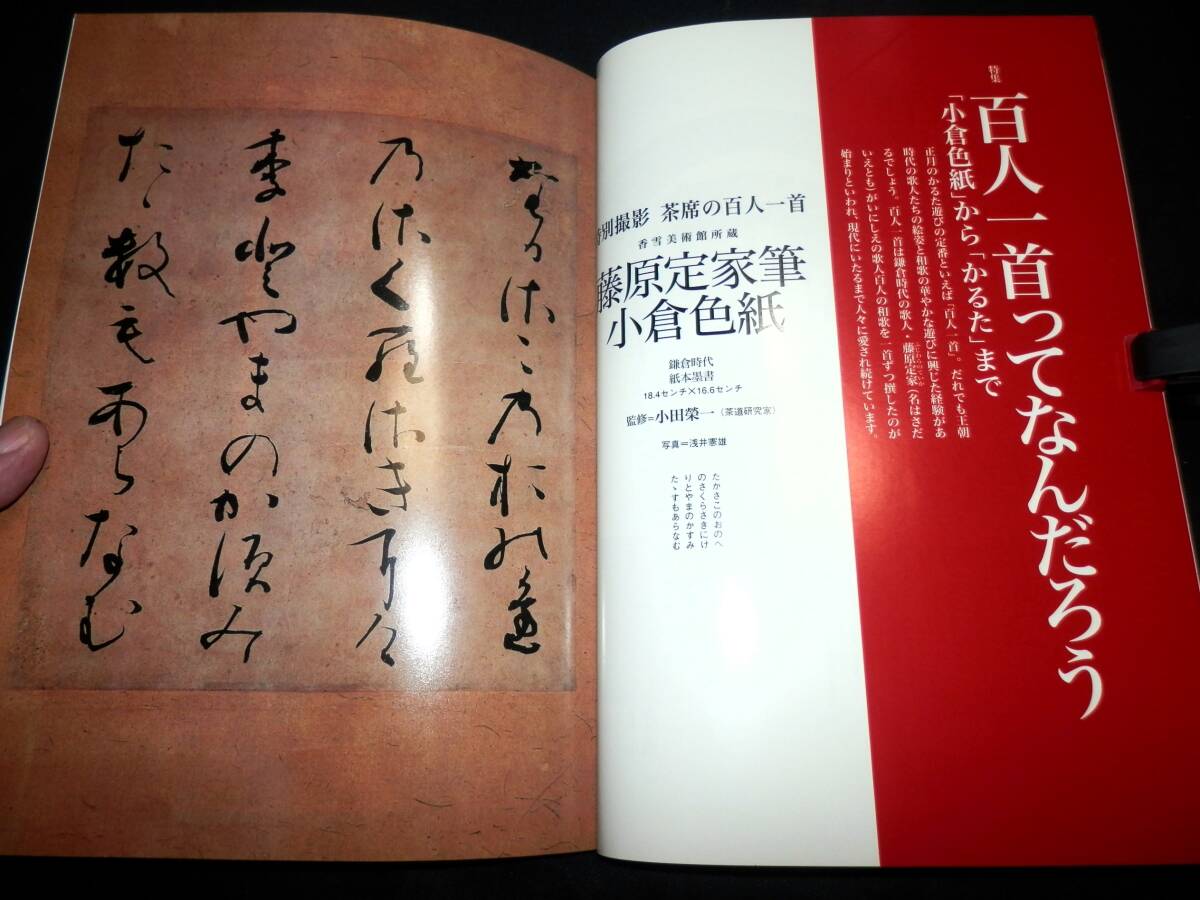 特集
百人一首ってなんだろう
「小倉色紙」から「かるた」まで
正月のかるた遊びの定番といえば「百人一首」。だれでも王朝
時代の歌人たちの絵姿と和歌の華やかな遊びに興じた経験があ
るでしょう。百人一首は鎌倉時代の歌人・藤原定家（名はさだ
ふじわらのていか
いえとも）がいにしえの歌人百人の和歌を一首ずつ撰したのが
始まりといわれ、現代にいたるまで人々に愛され続けています。
特別撮影 茶席の百人一首
香雪美術館所蔵
藤原定家筆
小倉色紙
鎌倉時代
紙本墨書
18.4センチ×16.6センチ
監修＝小田榮一（茶道研究家）
写真＝浅井憲雄
たかさこのおのへ
のさくらさきにけ
りとやまのかすみ
たゝすもあらなむ
たかさこ乃おのへ
乃さくらさきにけ
李とやまのか須み
たゝ数もあらなむ